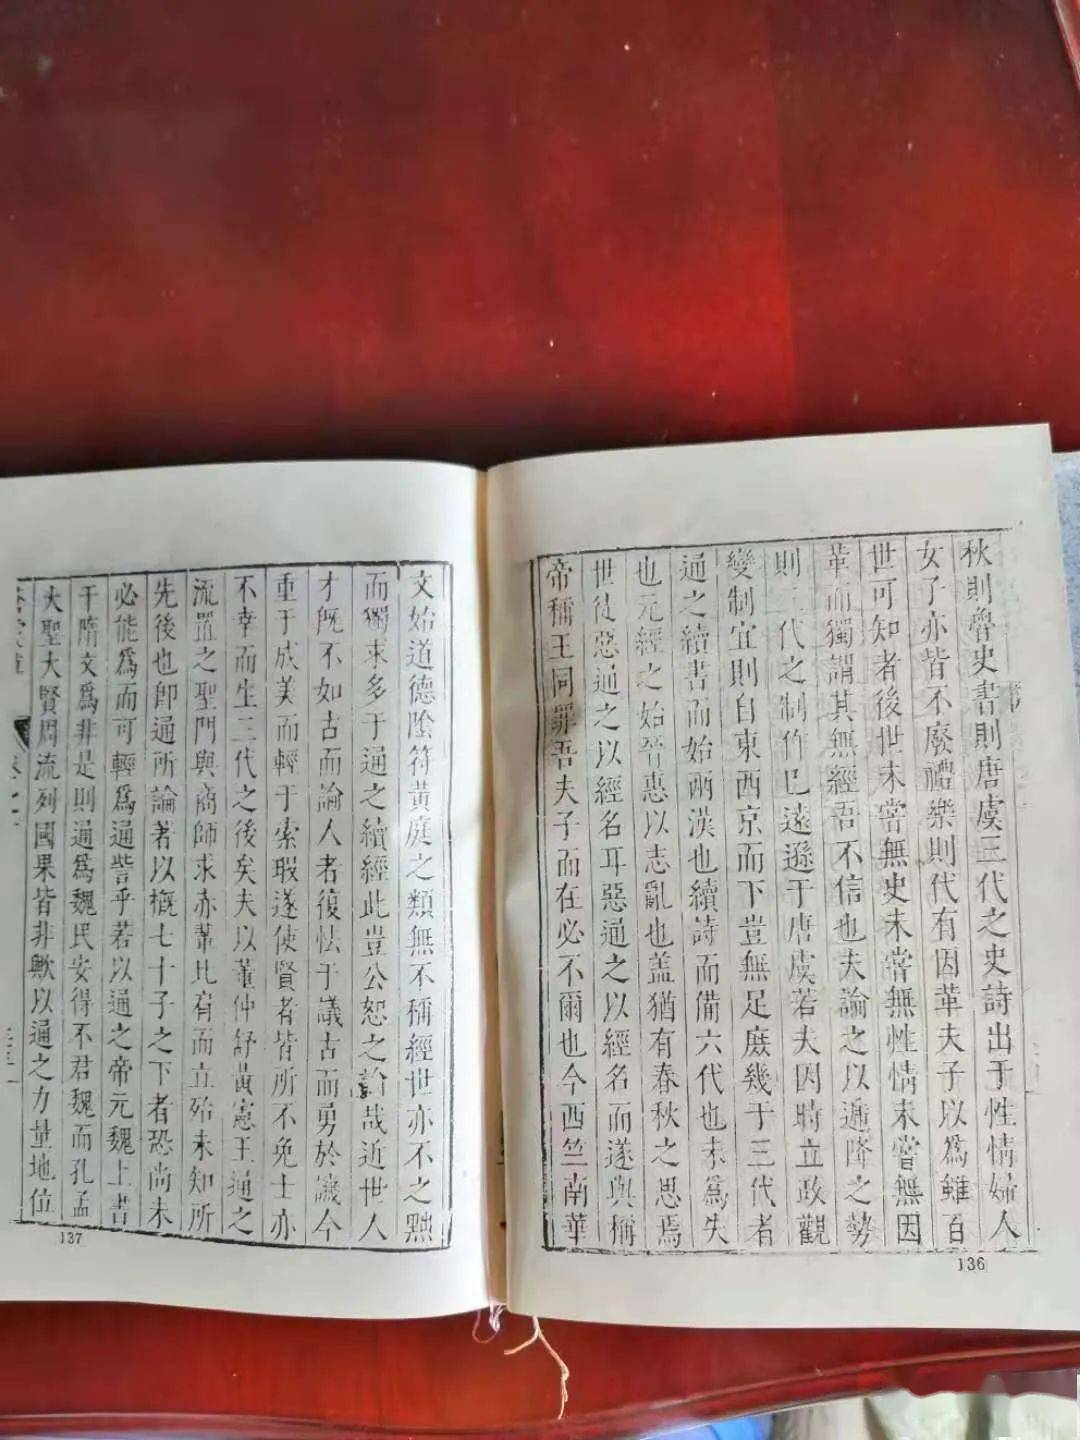 秋則魯史書則唐虞三代之史詩出于性情婦人
女子亦皆不廢禮樂則代有因革夫子以為雖百
世可知者後世未嘗無史未嘗無性情未嘗無因
革而獨謂其無經吾不信也夫論之以遞降之勢
則三代之制作已遠遜于唐虞若夫因時立政觀
變制宜則自東西京而下豈無足庶幾于三代者
通之續書而始兩漢也續詩而備六代也未為失
也元經之始晉惠以志亂也盖猶有春秋之思焉
世徒惡通之以經名耳惡通之以經名而遂與稱
帝稱王同罪吾夫子而在必不爾也今西竺南華
136
文始道德陰符黃庭之類無不稱經世亦不之黜
而獨求多于通之續經此豈公恕之論哉近世人
才既不如古而論人者復怯于議古而勇於議今
重于成美而輕于索瑕遂使賢者皆所不免士亦
不幸而生三代之後矣夫以董仲舒黃憲王通之
流置之聖門與商師求赤輩比肩而立殆未知所
先後也即通所論著以概七十子之下者恐尚未
必能為而可輕為通訾乎若以通之帝元魏上書
干隋文為非是則通為魏民安得不君魏而孔孟
大聖大賢周流列國果皆非歟以通之力量地位
137